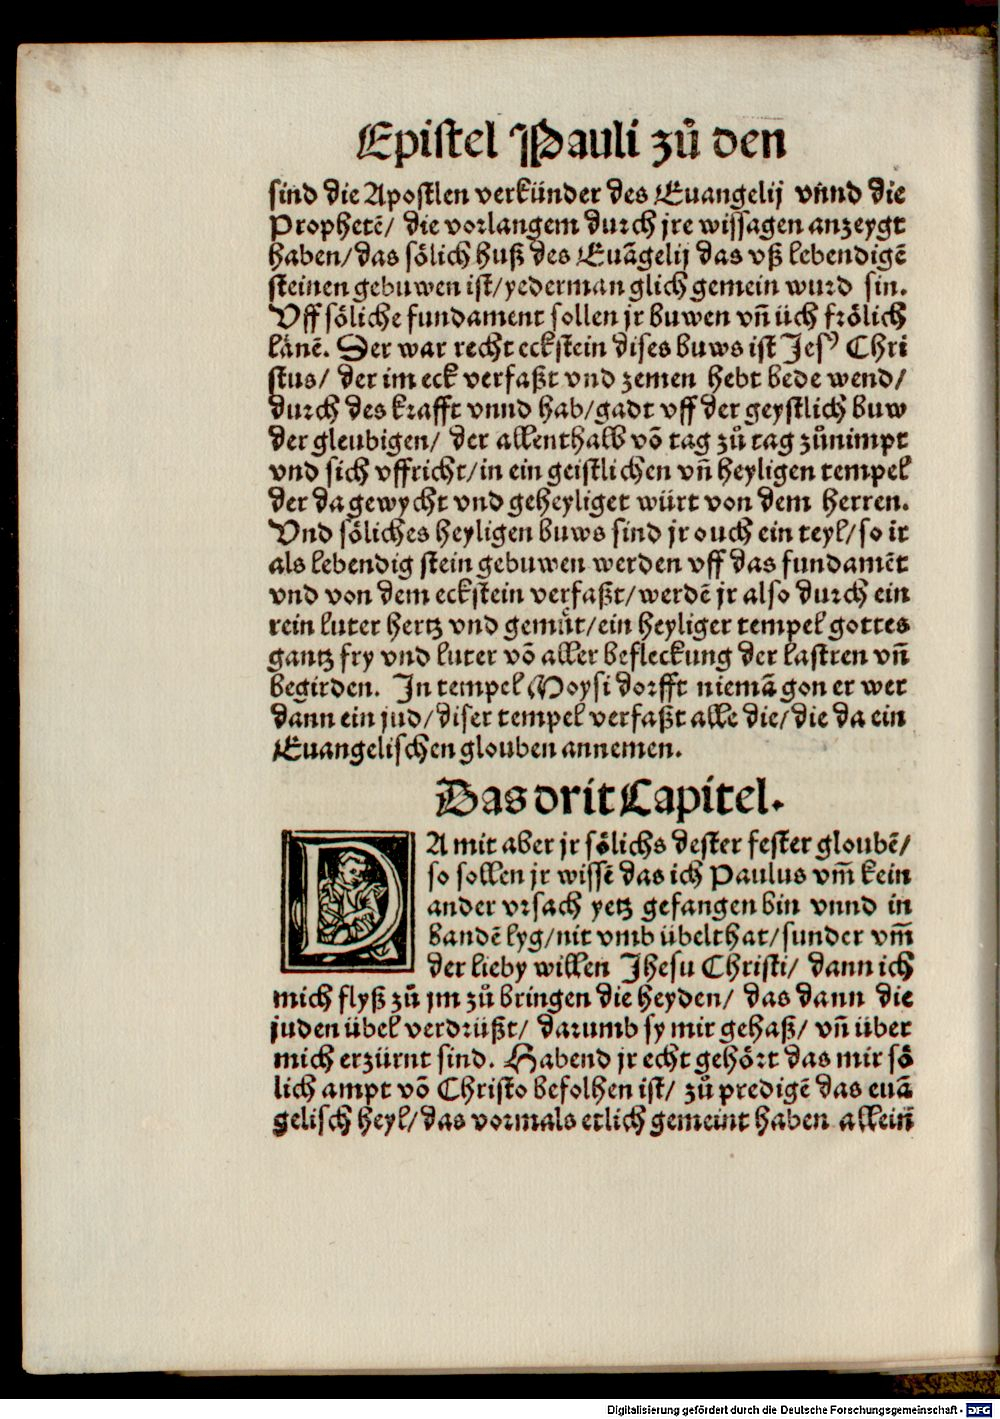 Epistel Pauli zů den
sind die Apostlen verkünder des Euangelij vnnd die
Prophetē/ die vorlangem durch jre wissagen anzeygt
haben/das sölich huß des Euāgelij das vß lebendigē
steinen gebuwen ist/yederman glich gemein wurd sin.
Vff söliche fundament sollen jr buwen vñ üch frölich
länē. Der war recht eckstein dises buws ist Jesꝰ Chri
stus/ der im eck verfaßt vnd zemen hebt bede wend/
durch des krafft vnnd hab/gadt vff der geystlich buw
der gleubigen/ der allenthalb vō tag zů tag zůnimpt
vnd sich vffricht/in ein geistlichen vñ heyligen tempel
der da gewycht vnd geheyliget würt von dem herren.
Vnd söliches heyligen buws sind jr ouch ein teyl/so ir
als lebendig stein gebuwen werden vff das fundamēt
vnd von dem eckstein verfaßt/werdē jr also durch ein
rein luter hertz vnd gemüt/ein heyliger tempel gottes
gantz fry vnd luter vō aller befleckung der lastren vñ
begirden. In tempel Moysi dorfft niemā gon er wer
dann ein jud/diser tempel verfaßt alle die/die da ein
Euangelischen glouben annemen.
Das drit Capitel.
DA mit aber jr sölichs dester fester gloubē/
so sollen jr wissē das ich Paulus vm̄ kein
ander vrsach yetz gefangen bin vnnd in
bandē lyg/nit vmb übelthat/sunder vm̄
der lieby willen Jhesu Christi/ dann ich
mich flyß zů jm zů bringen die heyden/ das dann die
juden übel verdrüßt/ darumb sy mir gehaß/ vñ über
mich erzürnt sind. Habend jr echt gehört das mir sö
lich ampt vō Christo befolhen ist/ zů predigē das euā
gelisch heyl/das vormals etlich gemeint haben allein
Digitalisierung gefördert durch die Deutsche Forschungsgemeinschaft - DFG